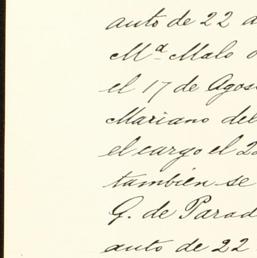 auto de 22 a
Mª Malo o
el 17 de Agos
Mariano del
el cargo el 2
tambien se
G. de Parad
auto de 22